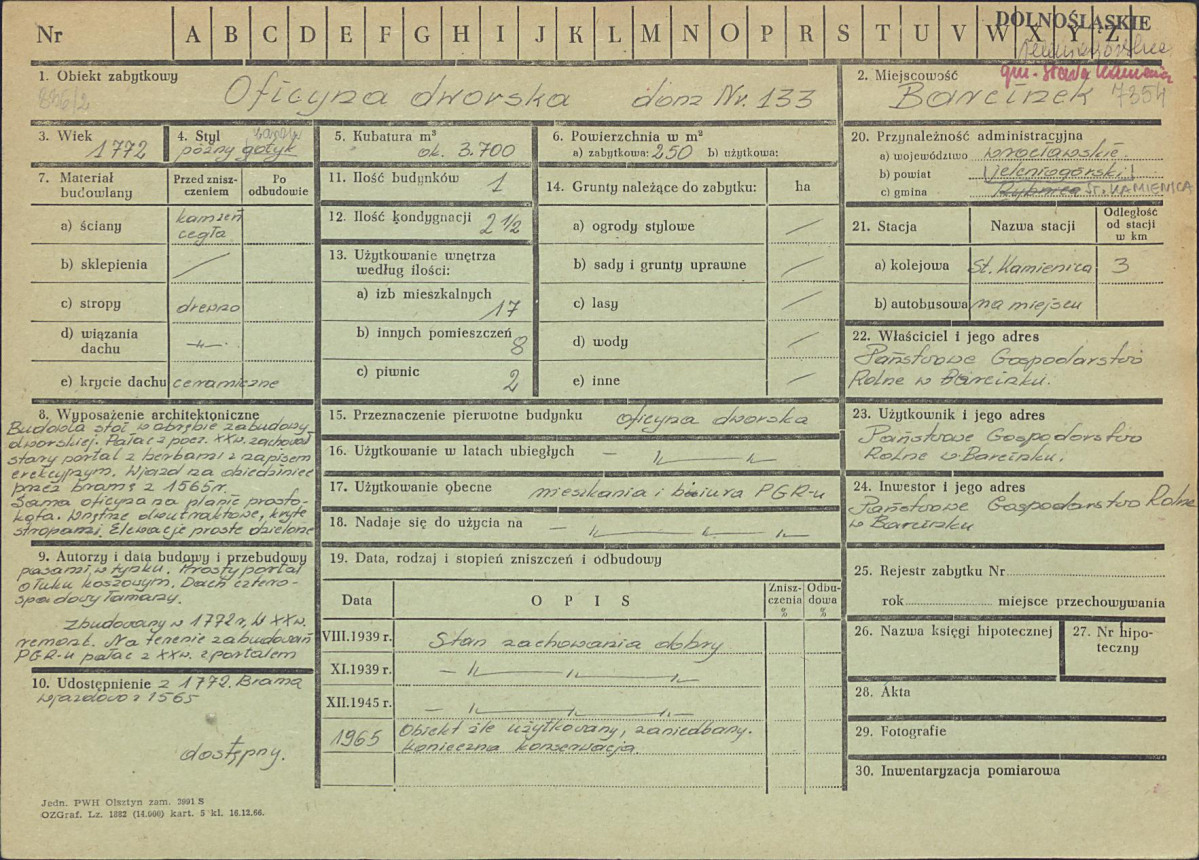 Nr A B C D E F G H I J K L M N O P R S T U V W X Y Z
DOLNOŚLĄSKIE
gm. Stara Kamienica
7354
1. Obiekt zabytkowy
836/2
Oficyna dworska dom Nr. 133
2. Miejscowość
Barcinek
3. Wiek
1772
4. Styl
barok
późny gotyk
5. Kubatura m³
ok. 3.700
6. Powierzchnia w m²
a) zabytkowa: 250 b) użytkowa:
7. Materiał budowlany
Przed zniszczeniem
Po odbudowie
a) ściany
kamień
cegła
b) sklepienia
c) stropy drewno
d) wiązania dachu -"-
e) krycie dachu ceramiczne
8. Wyposażenie architektoniczne
Budowla stoi w obrębie zabudowy
dworskiej. Pałac z pocz. XXw. zachował
stary portal z herbami z zapisem
erekcyjnym. Wjazd na dziedziniec
przez bramę z 1565 r.
Sama oficyna na planie prosto-
kąta. Wnętrze dwutraktowe, kryte
stropami. Elewacje proste dzielone
9. Autorzy i data budowy i przebudowy
pasami w tynku. Prosty portal
o łuku koszowym. Dach cztero-
spadowy łamany.
Zbudowany w 1772 r, W XXw.
remont. Na terenie zabudowań
PGR-u pałac z XXw. z portalem
10. Udostępnienie z 1772. Brama
wjazdowa z 1565
dostępny.
11. Ilość budynków 1
12. Ilość kondygnacji 2 1/2
13. Użytkowanie wnętrza
według ilości:
a) izb mieszkalnych
17
b) innych pomieszczeń
8
c) piwnic
2
14. Grunty należące do zabytku: ha
a) ogrody stylowe
b) sady i grunty uprawne
c) lasy
d) wody
e) inne
15. Przeznaczenie pierwotne budynku oficyna dworska
16. Użytkowanie w latach ubiegłych - " -
17. Użytkowanie obecne mieszkania i biura PGR-u
18. Nadaje się do użycia na - " -
19. Data, rodzaj i stopień zniszczeń i odbudowy
Data
O P I S
Zniszczenia %
Odbudowa %
VIII.1939 r. Stan zachowania dobry
XI.1939 r. - " -
XII.1945 r. - " -
1965 Obiekt źle użytkowany, zaniedbany.
Konieczna konserwacja
20. Przynależność administracyjna
a) województwo wrocławskie
b) powiat Jeleniogórski
c) gmina St. KAMIENICA
21. Stacja
Nazwa stacji
Odległość
od stacji
w km
a) kolejowa St. Kamienica 3
b) autobusowa na miejscu
22. Właściciel i jego adres
Państwowe Gospodarstwo
Rolne w Barcinku.
23. Użytkownik i jego adres
Państwowe Gospodarstwo
Rolne w Barcinku.
24. Inwestor i jego adres
Państwowe Gospodarstwo Rolne
w Barcinku
25. Rejestr zabytku Nr
rok miejsce przechowywania
26. Nazwa księgi hipotecznej
27. Nr hipo-
teczny
28. Akta
29. Fotografie
30. Inwentaryzacja pomiarowa
Jedn. PWH Olsztyn zam. 3991 S
OZGraf. Lz. 1882 (14.000) kart. 5 kl. 16.12.66.